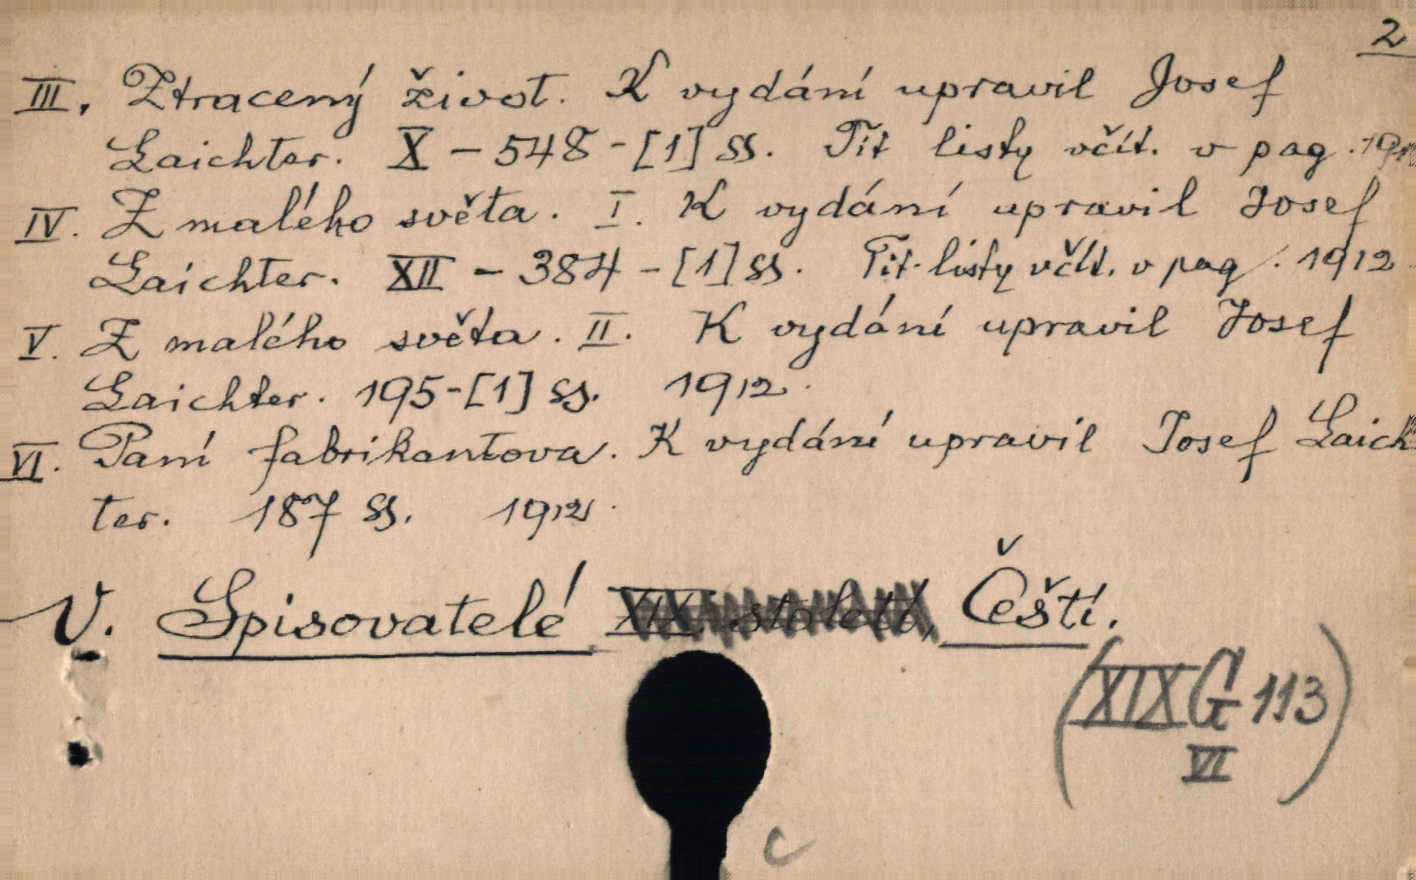 2
III. Ztracený život. K vydání upravil Josef
Laichter. X - 548 - [1] ss. Tit listy včít. v pag.
IV. Z malého světa. I. K vydání upravil Josef
Laichter. XII - 384 - [1] ss. Tit. listy včít. v pag. 1912
V. Z malého světa. II. K vydání upravil Josef
Laichter. 195 - [1] ss. 1912.
VI. Paní fabrikantova. K vydání upravil Josef Laich-
ter. 187 ss. 1912.
V. Spisovatelé XIX století, Čeští.
(XIX G 113)
VI
c